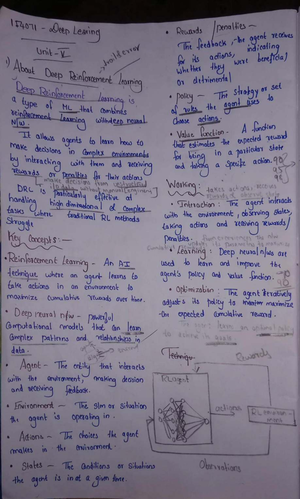 154071 - Deep Learning
Unit - V
1) About Deep Reinforcement Learning
Deep Reinforcement Learning is
a type of ML that combines
reinforcement Learning with deep neural
N/w.
It allows agents to learn how to
make decisions in Complex environments
by interacting with them and receiving
rewards or penalties for their actions
DRL is particularly effective at
handling high dimensional & Complex
tasks where traditional RL methods
Struggle
Key Concepts:-
Reinforcement Learning - An AI
technique where an agent learns to
take actions in an environment to
maximize cumulative rewards over time.
• Deep neural n/w - powerful
Computational models that can learn
Complex patterns and relationships in
data.
• Agent - The entity that interacts
with the environment, making decision
and receiving feedback.
• Environment - The s/m or situation
the agent is operating in.
• Actions - The choices the agent
makes in the environment.
• States - The Conditions or situations
the agent is in at a given time.
• Rewards / Penalties -
The feedback, the agent receives
for its actions, indicating
whether they were beneficial
or detrimental
• Policy - The strategy or set
of rules the agent uses to
choose actions.
• Value function - A function
that estimates the expected reward
for being in a particular state
and taking a specific action.
Working:-
• Interaction: The agent interacts
with the environment, observing states,
taking actions and receiving rewards/
penalties.
• Learning: Deep neural n/w are
used to learn and improve the
agent's policy and value function.
• Optimization: The agent iteratively
adjusts its policy to maximize
the expected cumulative reward.
Technique
Rewards
RL agent
actions
RL environ-
ment
Observations